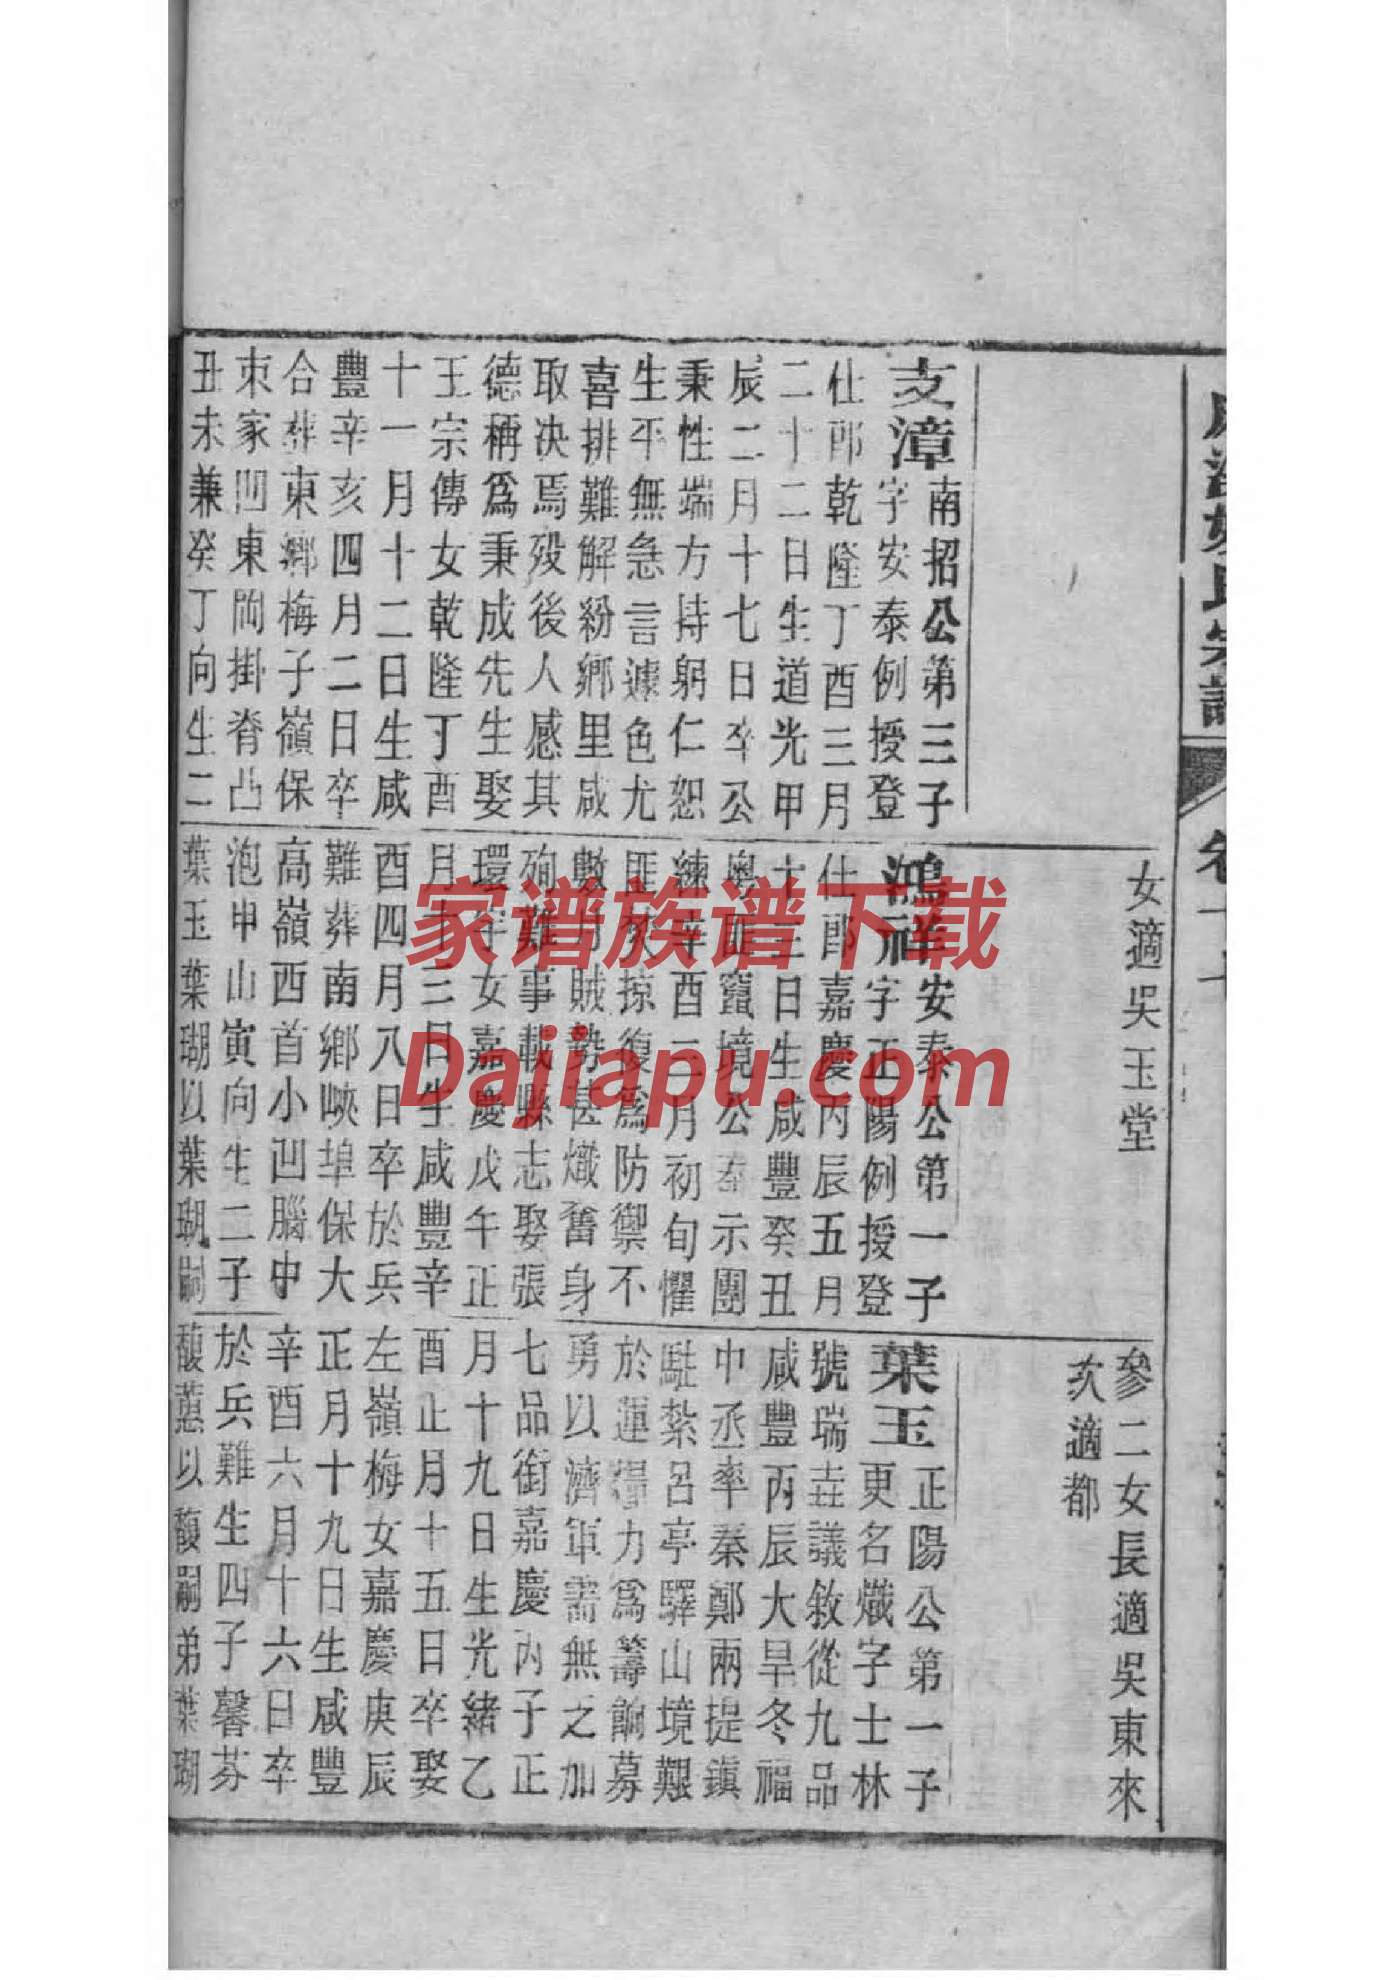 女適吳玉堂
參二女長適吳東來
次適都
支漳南招公第三子
字安泰例授登
仕郎乾隆丁酉三月
二十二日生道光甲
辰二月十七日卒公
秉性端方持躬仁恕
生平無急言遽色尤
喜排難解紛鄉里咸
取决焉殁後人感其
德稱爲秉成先生娶
王宗傳女乾隆丁酉
十一月十二日生咸
豐辛亥四月二日卒
合葬東鄉梅子嶺保
束家凹東岡掛脊凸
丑未兼癸丁向生二
鴻祥安泰公第一子
字正陽例授登
仕郎嘉慶丙辰五月
十三日生咸豐癸丑
粵匪竄境公奉示團
練辛酉二月初旬懼
匪衆掠復爲防禦不
數月賊勢甚熾奮身
殉難事載縣志娶張
環宇女嘉慶戊午正
月十三日生咸豐辛
酉四月八日卒於兵
難葬南鄉峽埠保大
高嶺西首小凹腦中
泡申山寅向生二子
葉玉葉瑚以葉瑚嗣
葉玉正陽公第一子
更名熾字士林
號瑞圭議敘從九品
咸豐丙辰大旱冬福
中丞率秦鄭兩提鎮
駐紮呂亭驛山境艱
於運糧力爲籌餉募
勇以濟軍需無之加
七品銜嘉慶丙子正
月十九日生光緒乙
酉正月十五日卒娶
左嶺梅女嘉慶庚辰
正月十九日生咸豐
辛酉六月十六日卒
於兵難生四子馨芬
馥蕙以馥嗣弟葉瑚
家谱族谱下载
Dajiapu.com